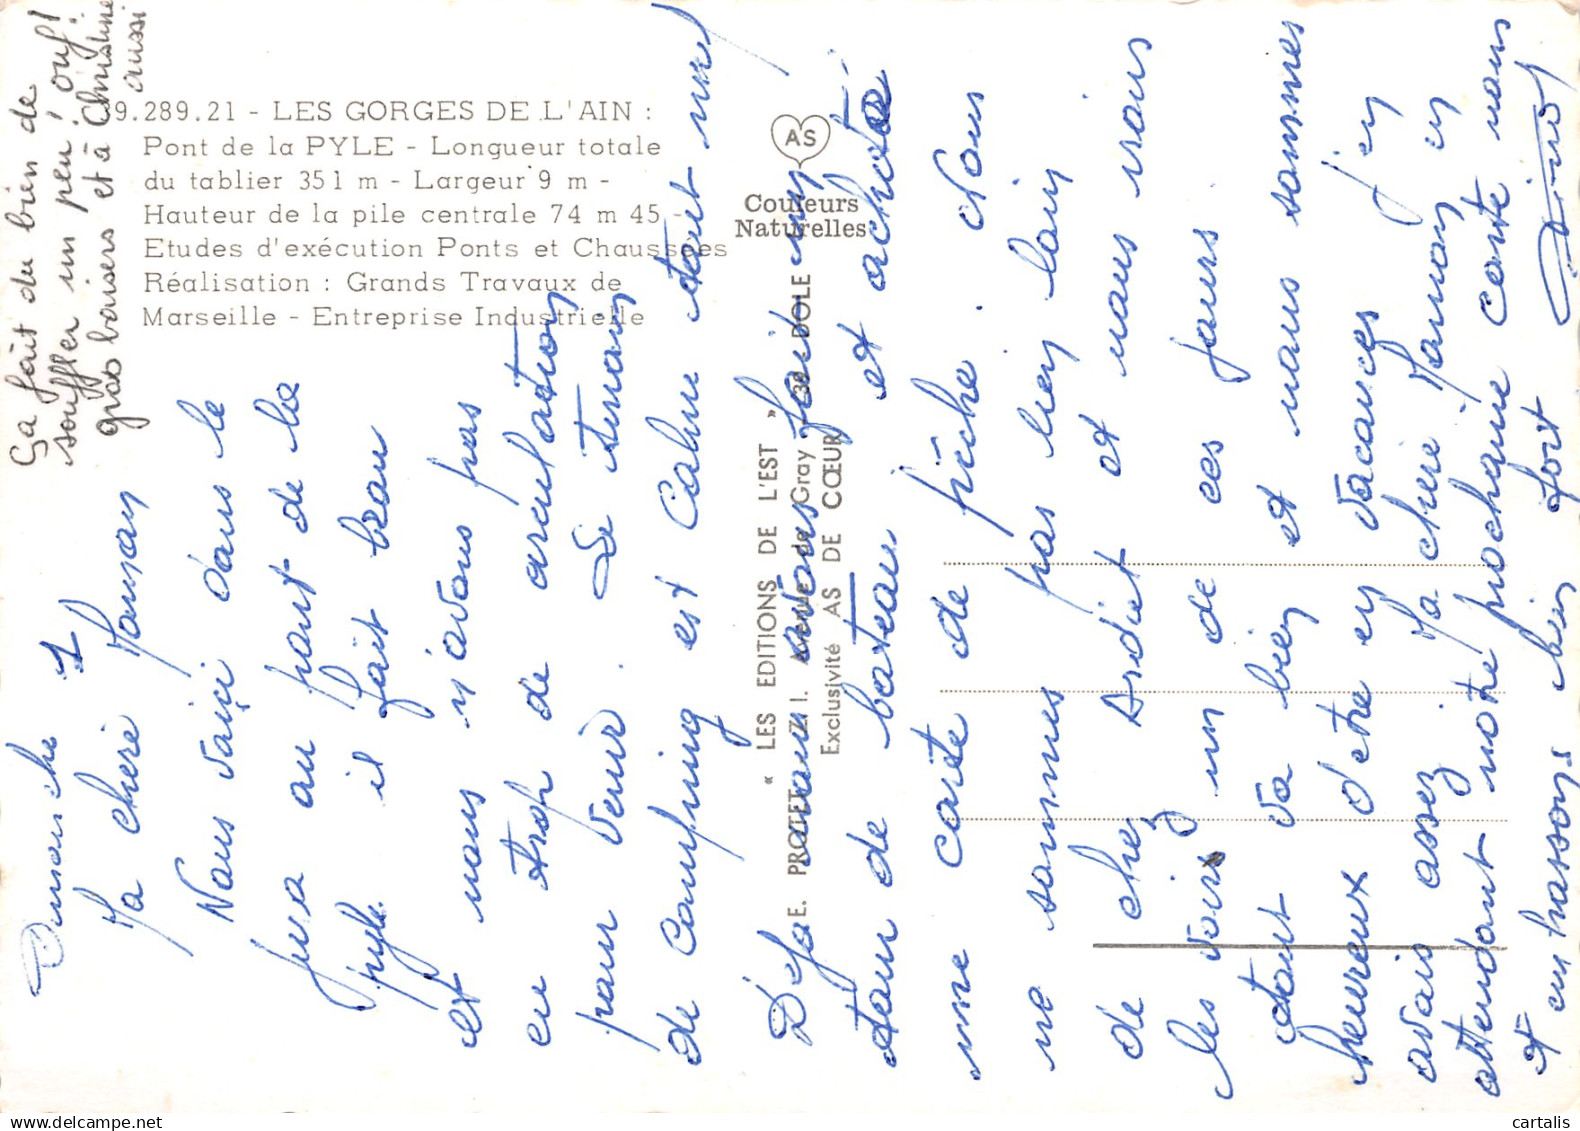 39.289.21 - LES GORGES DE L'AIN :
Pont de la PYLE - Longueur totale
du tablier 351 m - Largeur 9 m -
Hauteur de la pile centrale 74 m 45 -
Etudes d'exécution Ponts et Chaussées
Réalisation : Grands Travaux de
Marseille - Entreprise Industrielle
AS
Couleurs
Naturelles
« LES EDITIONS DE L'EST »
E. PROTET Z. I. Avenue de Gray - 39 DOLE
Exclusivité AS DE CŒUR
Dimanche 1
Ma chère Maman
Nous voiçi dans le
jura au pont de la
pyle. il fait beau
et nous n'avons pas
eu trop de circulation
pour venir. Le terrain
de Camping est Calme tout
Déja nous avons fait un
tour de bateau et achoté
une carte de pêche. Nous
ne sommes pas bien loin
de chez Ardiet et nous irons
les voirs un de ces jours
tout va bien et nous sommes
heureux d'etre en vacances j'en
avais assez Ma chère Maman en
attendant notre prochaine carte nous
t'embrassons bien fort
Ça fait du bien de
souffler un peu, ouf!
gros baisers et à Christine
aussi
cartalis